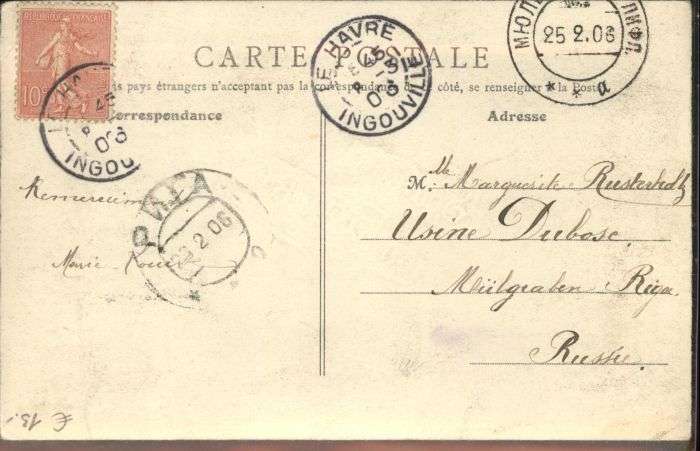 RÉPUBLIQUE FRANÇAISE
10
CARTE POSTALE
pays étrangers n'acceptant pas la correspondance côté, se renseigner à la Poste
Correspondance
Adresse
LE HAVRE
INGOUVILLE
06
LE HA
INGOU
06
МЮЛ ЛИФЛ.
25 2.06
* * a
РИГА
2 06
Remerciem
Marie
Mlle Marguerite
Usine Dubosc
Mülgraben Riga
Russie
£ 13.-